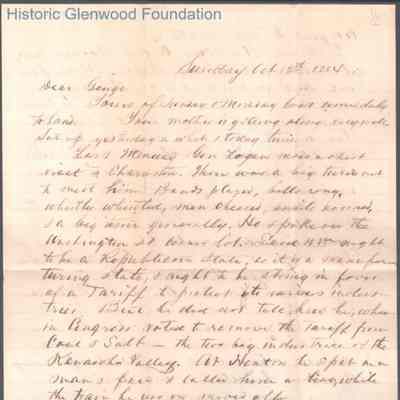 Historic Glenwood Foundation
Sunday Oct 12th, 1884.
Dear George
Yours of Sunday & Monday last came duly
to hand. Your mother is getting along very well
Sat up yesterday a while & today
Last Gen Logan made a short
visit to Charleston. There was a big turn out
to meet him. Bands played, bells rang,
whistles whistled, men cheered,
& a big generally. He spoke on the
Washington St lot. Said W Va ought
to be a Republican State, as it is a manufac
turing state, & ought to be strong in favor
of a Tariff to protect its various indus-
tries. But he did not tell how he, when
in Congress voted to remove the tariff from
Coal & Salt – the two big industries of the
Kanawha Valley. At Hinton he spit in a
man's face & called him a liar, while
the train he was on moved off